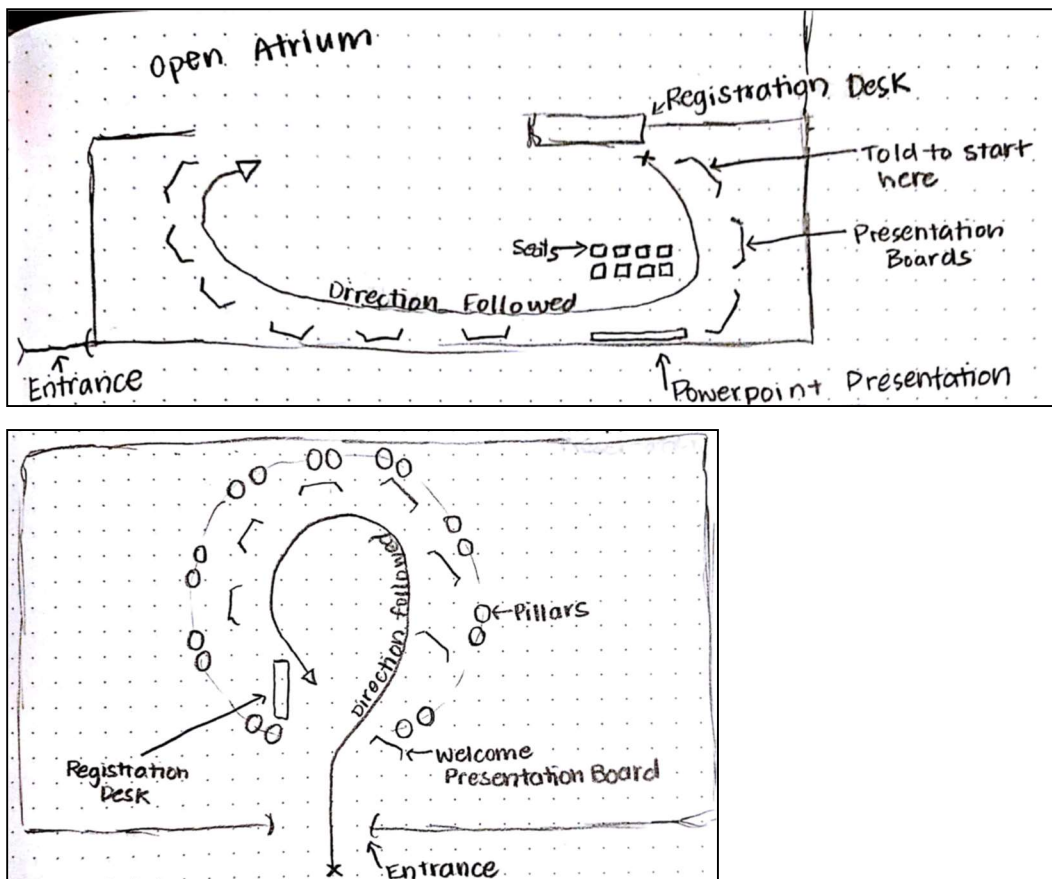 Open Atrium
Registration Desk
Told to start
here
Seats
Presentation
Boards
Dirrection Followed
Entrance
Powerpoint Presentation
Direction followed
Pillars
Registration
Desk
Welcome
Presentation Board
Entrance